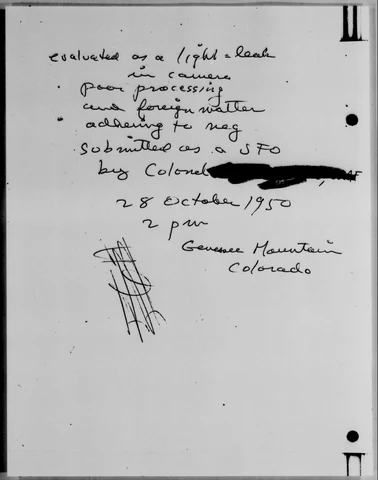 evaluated as a light-leak
in camera
poor processing
and foreign matter
adhering to neg
submitted as a SFO
by Colonel
28 October 1950
2 pm
Genesee Mountain
Colorado